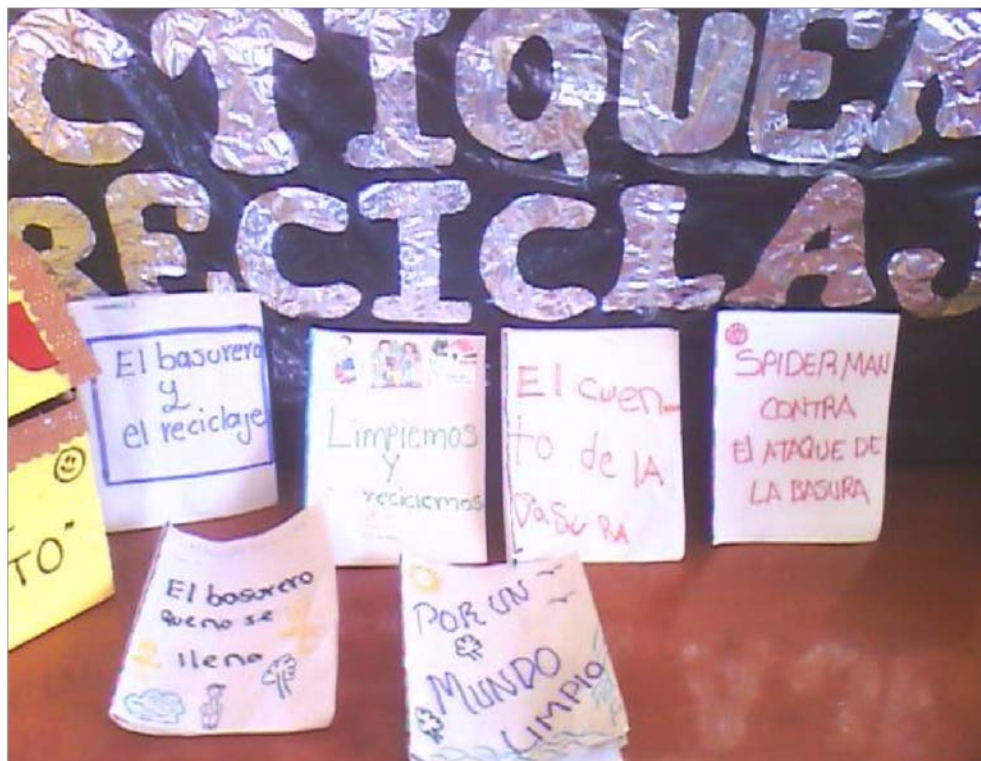 CTIQUEM
RECICLAJ
El basurero
y
el reciclaje
Limpiemos
y
reciclemos
El cuen-
to de lA
basuRA
SPIDERMAN
CONTRA
El ATAQUE DE
LA BASURA
TO"
El basurero
que no se
llena
POR UN
MUNDO
LIMPIO